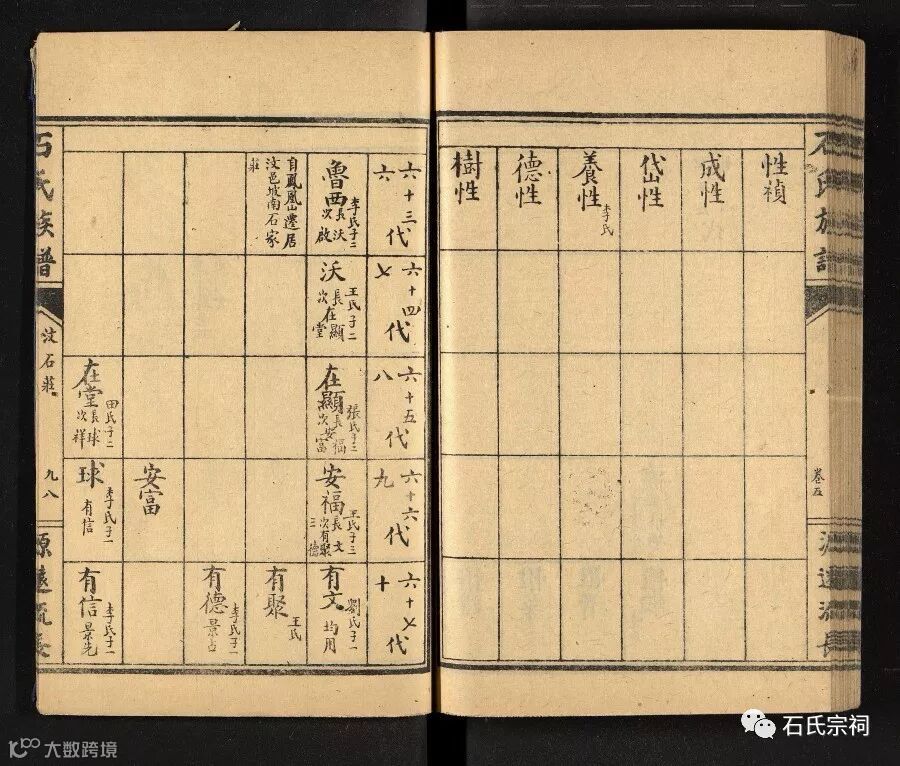 石氏族譜
卷五
源遠流長
性禎
成性
岱性
養性 李氏
德性
樹性
六十三代
六
六十四代
七
六十五代
八
六十六代
九
六十七代
十
魯西 李氏子二
長沃
次啟
自鳳凰山遷居
汶邑坡南石家
莊
沃 王氏子二
長在顯
次 堂
在顯 張氏子二
長安福
次安富
在堂 田氏子二
長球
次祥
安福 王氏子三
長 文
次有聚
三 德
安富
球 李氏子一
有信
有文 劉氏子一
均用
有聚 王氏
有德 李氏子一
景占
有信 李氏子一
景先
石氏族譜
汶石莊
九八
源遠流長
石氏宗祠
大数跨境